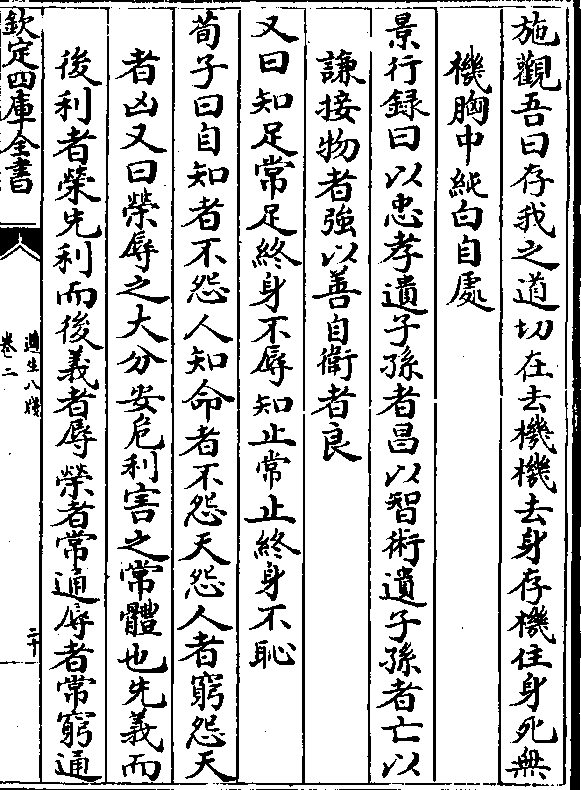 施觀吾曰存我之道切在去機機去身存機住身死無
機胸中純白自處
景行録曰以忠孝遺子孫者昌以智術遺子孫者亡以
謙接物者強以善自衛者良
又曰知足常足終身不辱知止常止終身不恥
荀子曰自知者不怨人知命者不怨天怨人者窮怨天
者凶又曰榮辱之大分安危利害之常體也先義而
後利者榮先利而後義者辱榮者常通辱者常窮通
欽定四庫全書
遵生八牋
卷二
二十